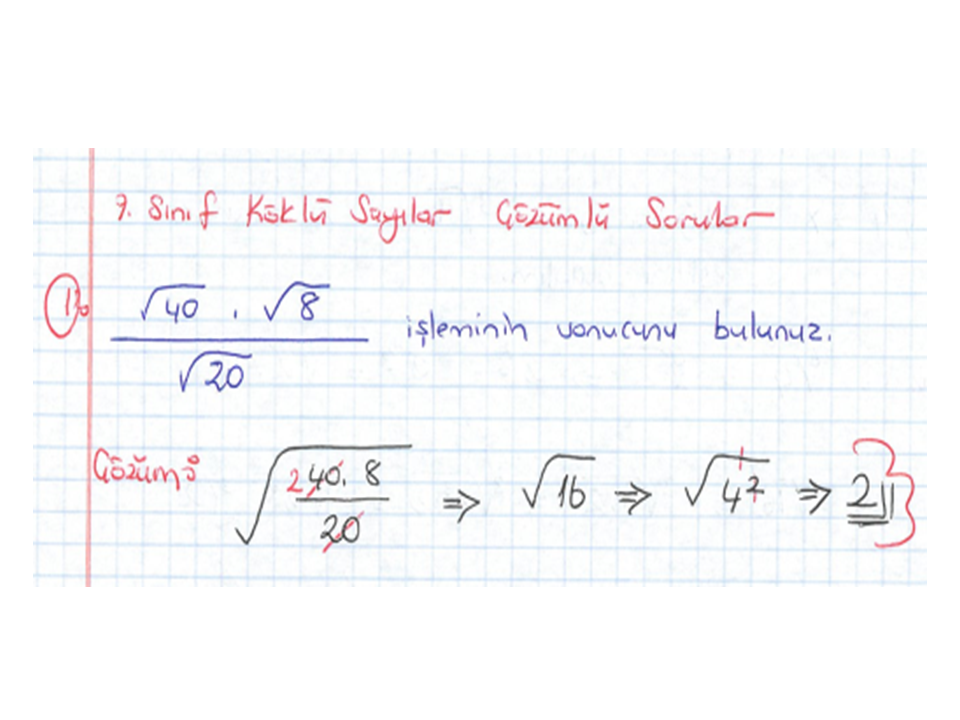 9. Sınıf Köklü Sayılar Çözümlü Sorular
1) √40 . √8 / √20 işleminin sonucunu bulunuz.
Çözüm: √(2 40. 8 / 20) ⇒ √16 ⇒ √4² ⇒ 2//